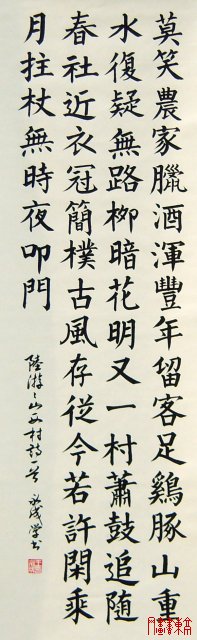 莫笑農家臘酒渾豐年留客足鷄豚山重
水復疑無路柳暗花明又一村蕭鼓追随
春社近衣冠簡樸古風存從今若許閑乘
月拄杖無時夜叩門
陸游游山西村詩一首